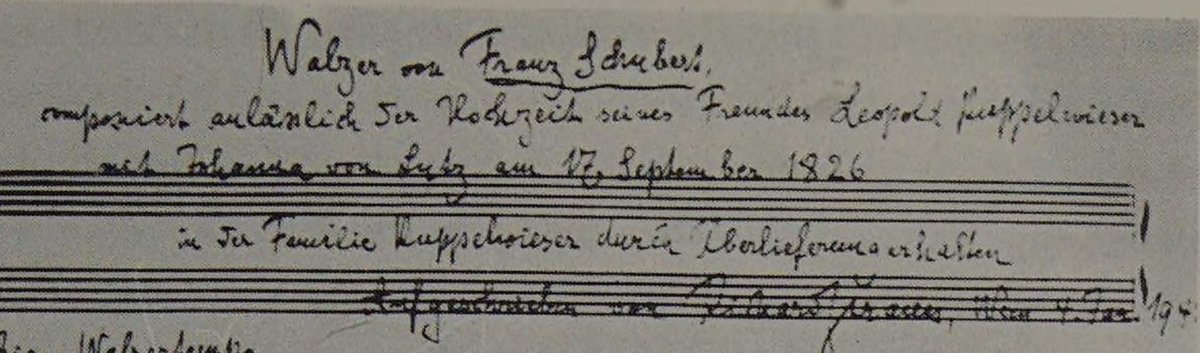 Walzer von Franz Schubert,
componiert anlässlich der Hochzeit seines Freundes Leopold Kuppelwieser
mit Johanna von Lutz am 17. September 1826
in der Familie Kuppelwieser durch Überlieferung erhalten
Aufgeschrieben von Richard Strauss, Wien 4. Jan.
Walzertempo